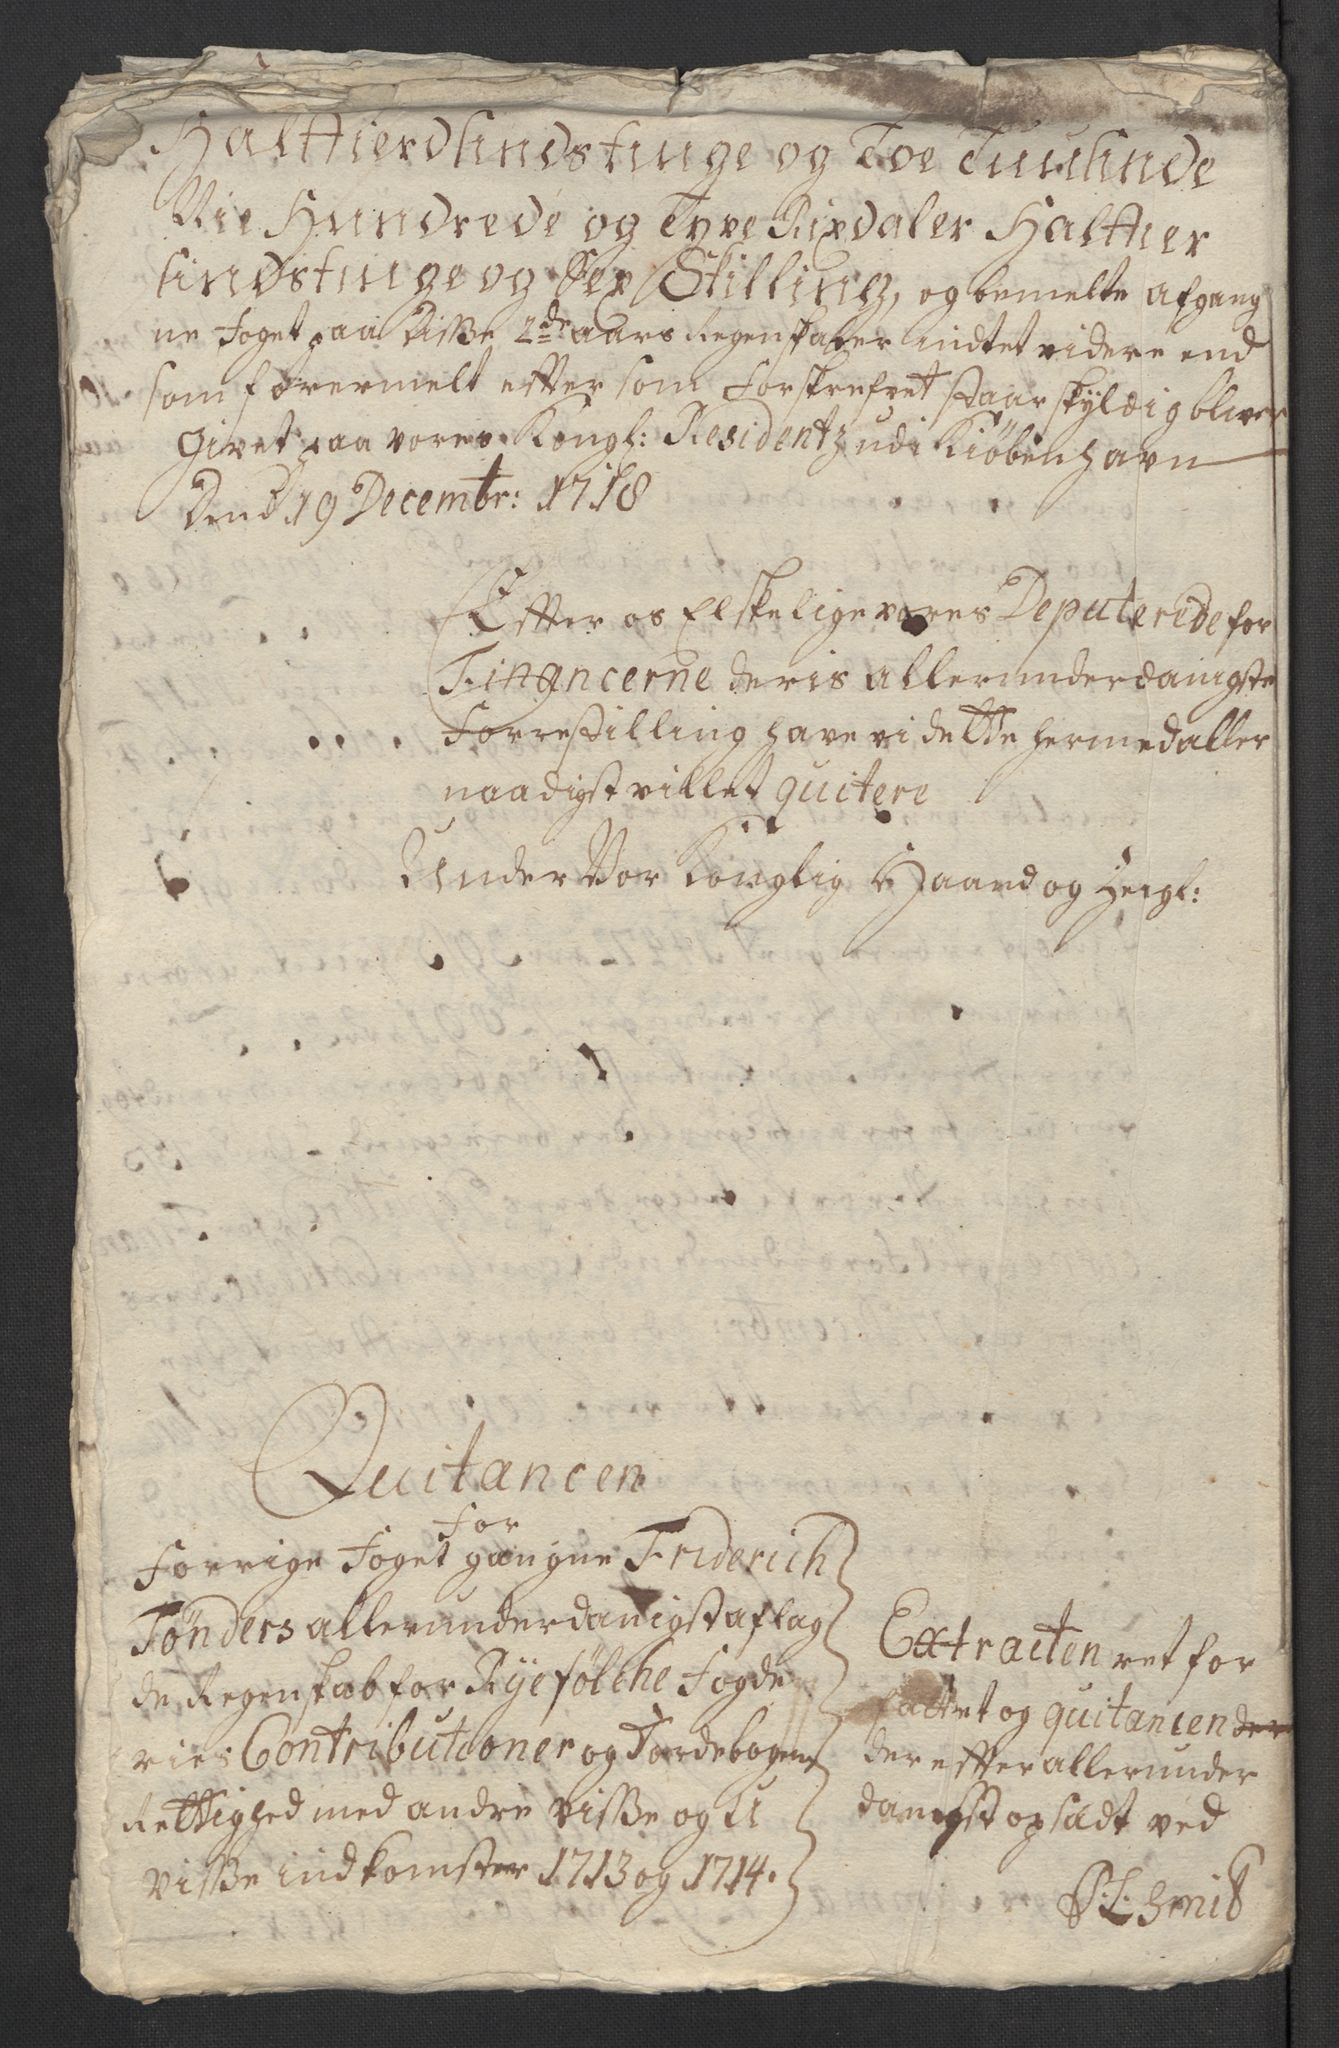 Halffierdsindstiuge og Toe Tuusinde
Nie Hundrede og Tyve Rixdaler Halffier
sindstiuge og Sex Skilling, og bemelte afgang
ne Foget paa disse 2de aars Regenskaber indtet videre end
som forermelt efftersom forskrefvet staar skyldig bliver
Givet paa vores Kongl: Residentz udi Kiøbenhavn
Dend 19 Decembr: 1718
Efter os Elskelige vores Deputerede for
Financerne deris allerunderdanigste
Forrestilling have vi dette hermed aller
naadigst villet quitere
Under Vor Konglig Haand og Zeigl:
Quitancen
For
Forrige Foget gangne Friderich
Tønders allerunderdanigst aflag
de Regenskab for Ryefølche Fogde
ries Contributioner og Jordebogens
Rettighed med andre visse og U
visse indkomster 1713 og 1714.
Extracten ret for
fattet og quitancen der
der effter allerunder
danigst opsadt ved
P: L: Smit